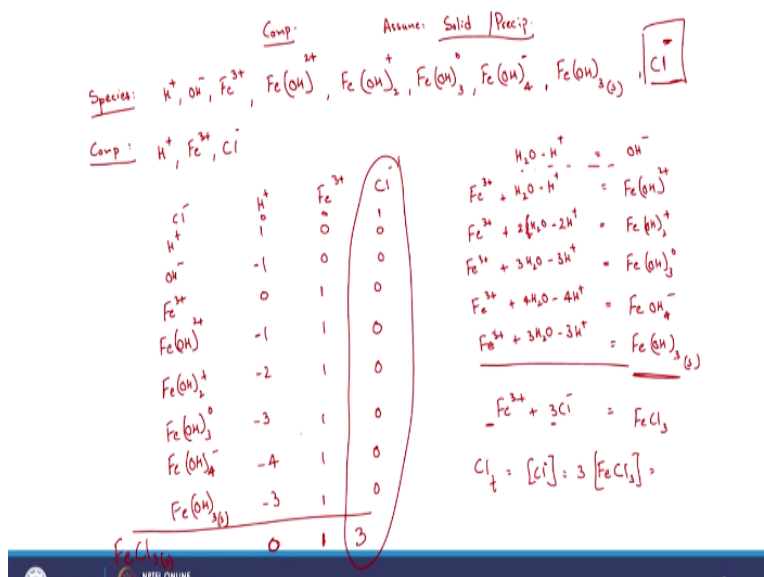 Comp. Assume: Solid | Precip.
Species: H⁺, OH⁻, Fe³⁺, Fe(OH)²⁺, Fe(OH)₂⁺, Fe(OH)₃⁰, Fe(OH)₄⁻, Fe(OH)₃(s), Cl⁻
Comp: H⁺, Fe³⁺, Cl⁻
H⁺ Fe³⁺ Cl⁻
Cl⁻ 0 0 1
H⁺ 1 0 0
OH⁻ -1 0 0
Fe³⁺ 0 1 0
Fe(OH)²⁺ -1 1 0
Fe(OH)₂⁺ -2 1 0
Fe(OH)₃⁰ -3 1 0
Fe(OH)₄⁻ -4 1 0
Fe(OH)₃(s) -3 1 0
FeCl₃(s) 0 1 3
H₂O - H⁺ = OH⁻
Fe³⁺ + H₂O - H⁺ = Fe(OH)²⁺
Fe³⁺ + 2H₂O - 2H⁺ = Fe(OH)₂⁺
Fe³⁺ + 3H₂O - 3H⁺ = Fe(OH)₃⁰
Fe³⁺ + 4H₂O - 4H⁺ = Fe OH₄⁻
Fe³⁺ + 3H₂O - 3H⁺ = Fe(OH)₃(s)
Fe³⁺ + 3Cl⁻ = FeCl₃
Cl_t = [Cl⁻] = 3 [FeCl₃] =
NPTEL ONLINE